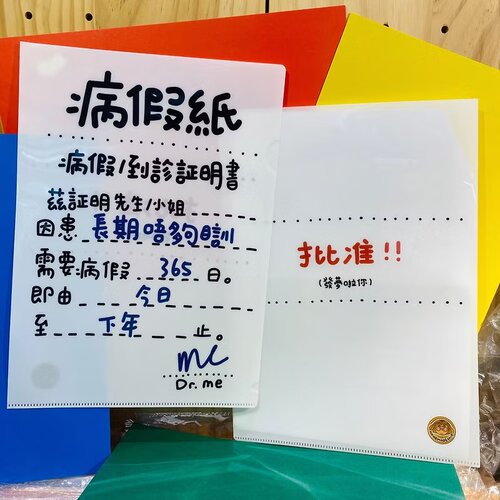 病假紙
病假/到診証明書
茲証明先生/小姐
因患長期唔夠瞓
需要病假365日。
即由今日
至下年止。
mc
Dr. me
批准!!
(發夢啦你)